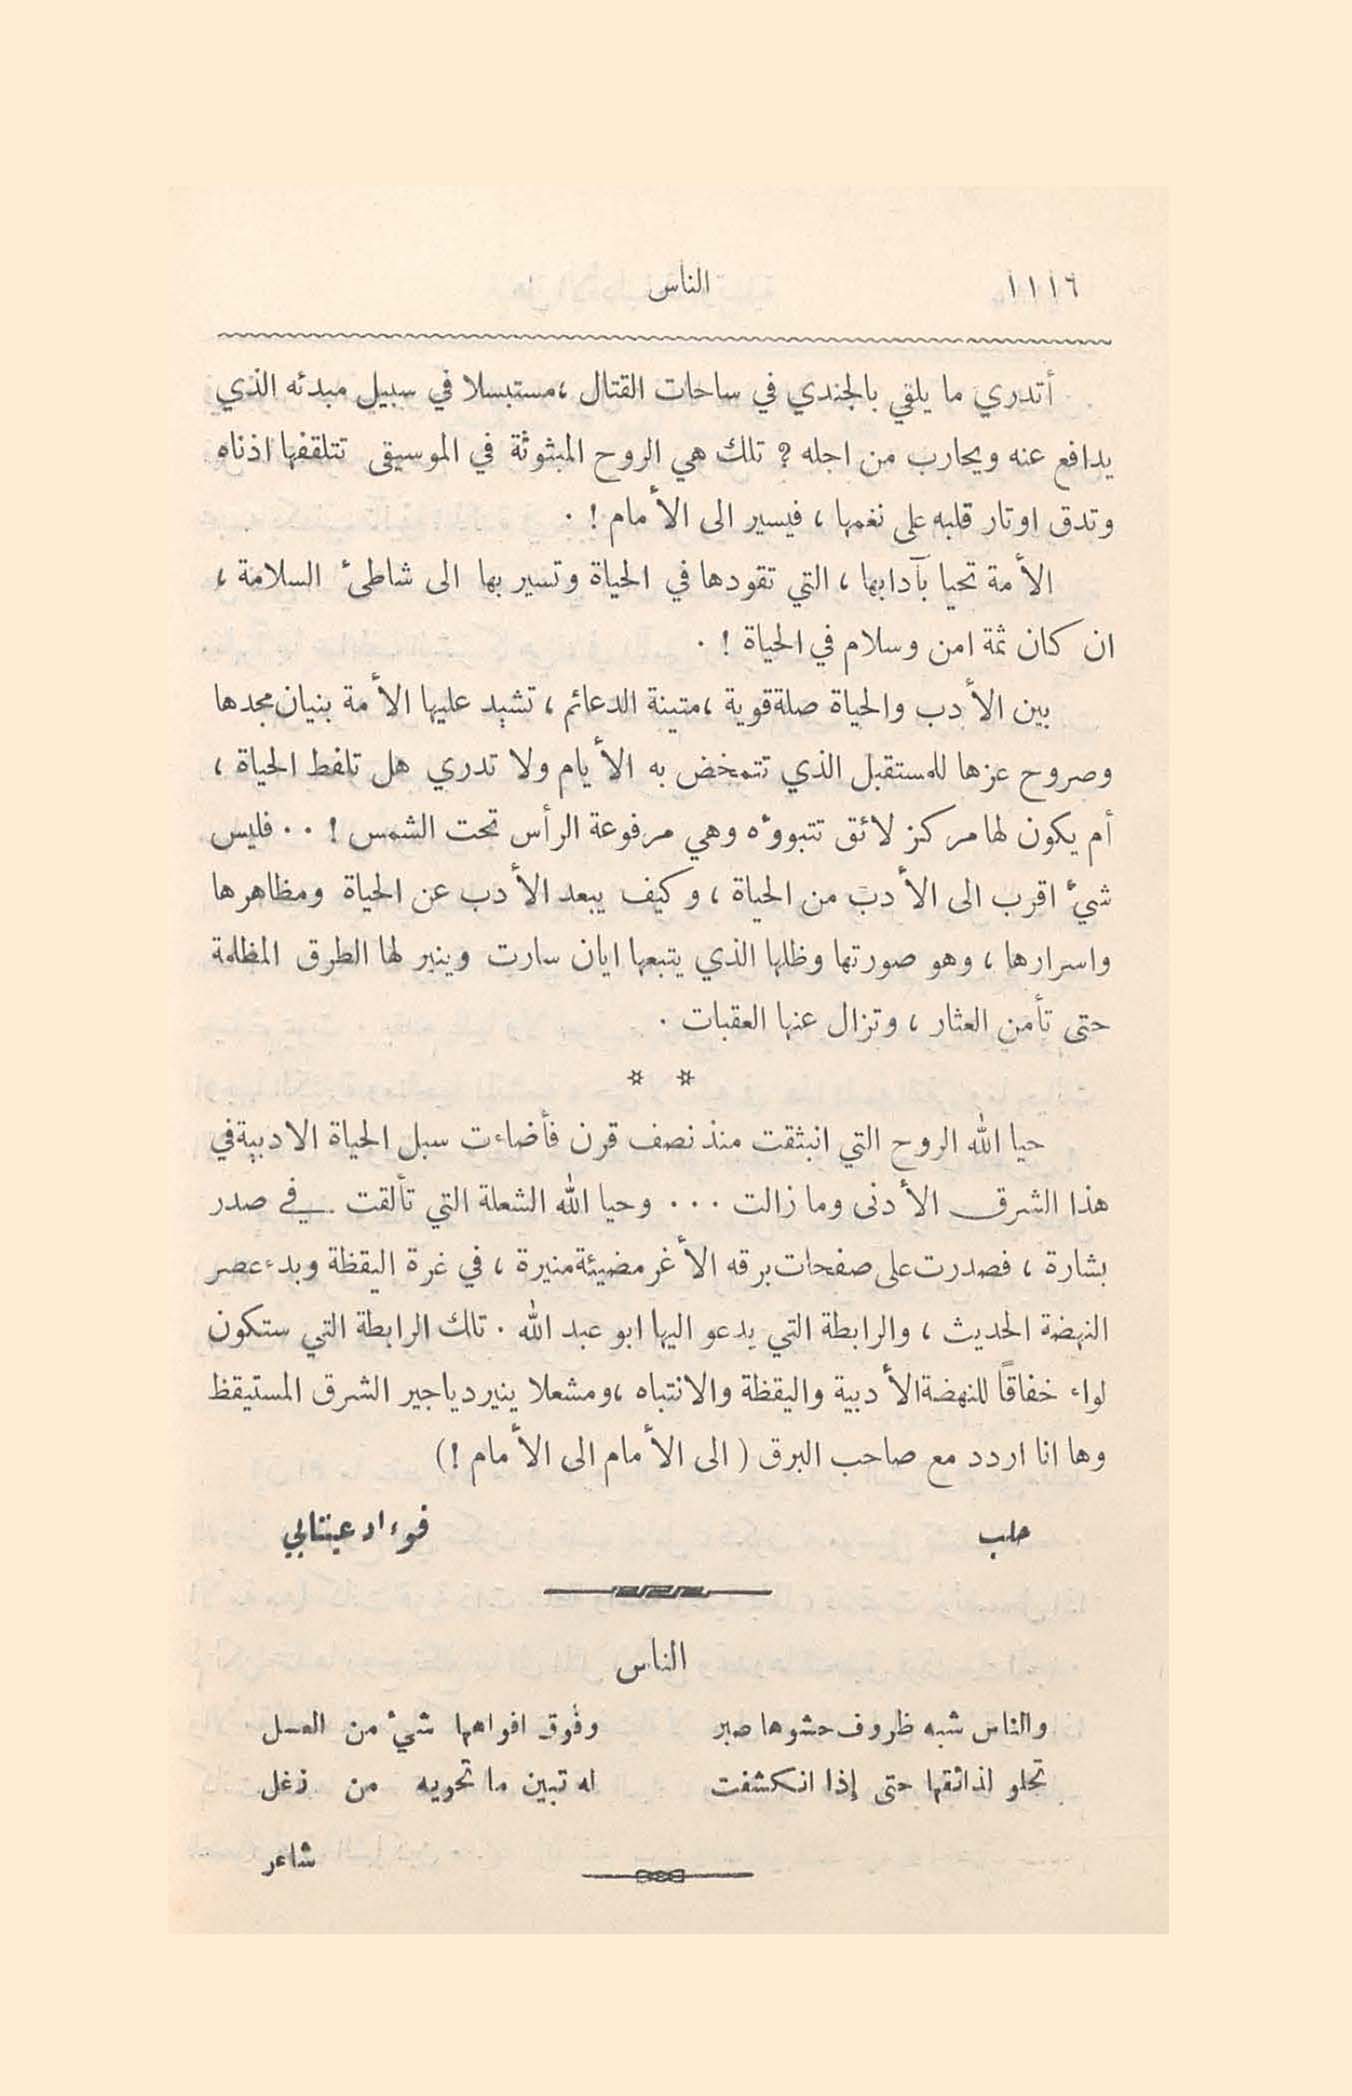 ١١١٦ الناس
أتدري ما يلقي بالجندي في ساحات القتال ، مستبسلا في سبيل مبدئه الذي
يدافع عنه ويحارب من اجله ؟ تلك هي الروح المبثوثة في الموسيقى تتلقفها اذناه
وتدق اوتار قلبه على نغمها ، فيسير الى الأمام ! .
الأمة تحيا بآدابها ، التي تقودها في الحياة وتسير بها الى شاطئ السلامة ،
ان كان ثمة امن وسلام في الحياة ! .
بين الأدب والحياة صلة قوية ، متينة الدعائم ، تشيد عليها الأمة بنيان مجدها
وصروح عزها للمستقبل الذي تتمخض به الأيام ولا تدري هل تلفظ الحياة ،
أم يكون لها مركز لائق تتبووءه وهي مرفوعة الرأس تحت الشمس ! . . فليس
شيء اقرب الى الأدب من الحياة ، وكيف يبعد الأدب عن الحياة ومظاهرها
واسرارها ، وهو صورتها وظلها الذي يتبعها ايان سارت وينير لها الطرق المظلمة
حتى تأمن العثار ، وتزال عنها العقبات .
* *
حيا الله الروح التي انبثقت منذ نصف قرن فأضاءت سبل الحياة الادبية في
هذا الشرق الأدنى وما زالت . . . وحيا الله الشعلة التي تألقت في صدر
بشارة ، فصدرت على صفحات برقه الأغر مضيئة منيرة ، في غرة اليقظة وبدء عصر
النهضة الحديث ، والرابطة التي يدعو اليها ابو عبد الله . تلك الرابطة التي ستكون
لواء خفاقاً للنهضة الأدبية واليقظة والانتباه ، ومشعلا ينير دياجير الشرق المستيقظ
وها انا اردد مع صاحب البرق ( الى الأمام الى الأمام ! )
حلب فوءاد عينتابي
الناس
والناس شبه ظروف حشوها صبر وفوق افواهها شيء من العسل
تحلو لذائقها حتى إذا انكشفت له تبين ما تحويه من زغل
شاعر